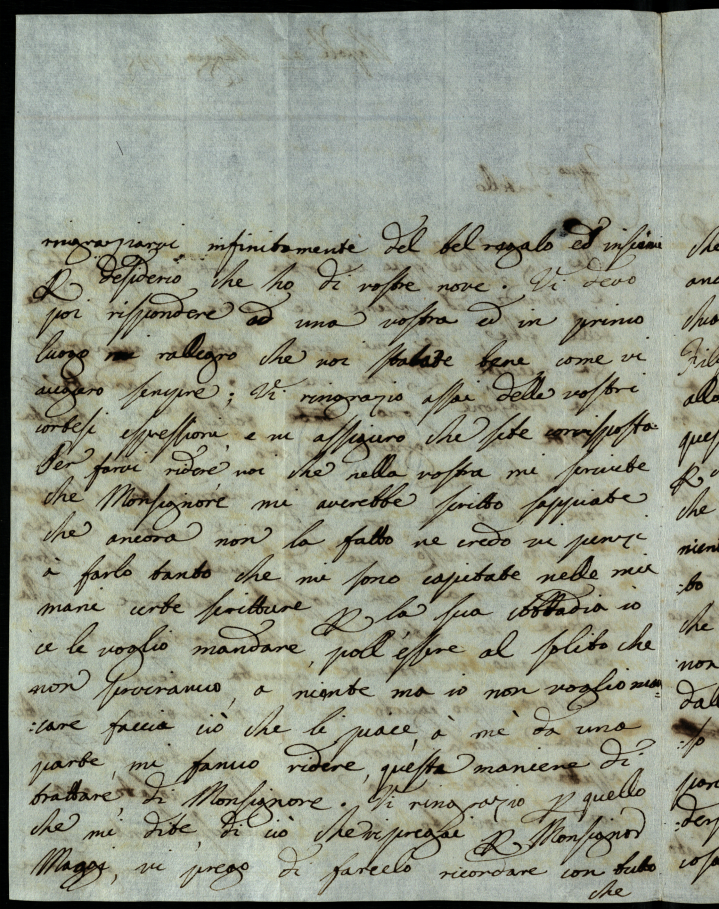 ringraziarvi infinitamente del bel regalo ed insieme
P desiderio che ho di vostre nove. Vi devo
poi rispondere ad una vostra ed in primo
luogo mi rallegro che voi state bene, come vi
auguro sempre; Vi ringrazio assai delle vostri
cortesi espressioni, e vi assiguro che site corrisposta
Per farvi ridere voi che nella vostra mi scrivete
che Monsignore mi averebbe scritto sappiate
che ancora non la fatto ne credo vi penzi
à farlo tanto che mi sono capitate nelle mie
mani certe scritture P la sua abbadia io
ce le voglio mandare, poll'essere al solito che
non serviranno, a niente ma io non voglio man
:care faccia ciò che li piace, à mè da una
parte, mi fanno ridere, questa maniene di
trattare di Monsignore. Vi ringrazio P quello
che mi dite, di ciò che vi pregai P Monsignor
Maggi, vi prego di farcelo ricordare con tutto
che
che
ques
P
che
nient
:to
che
non
:so